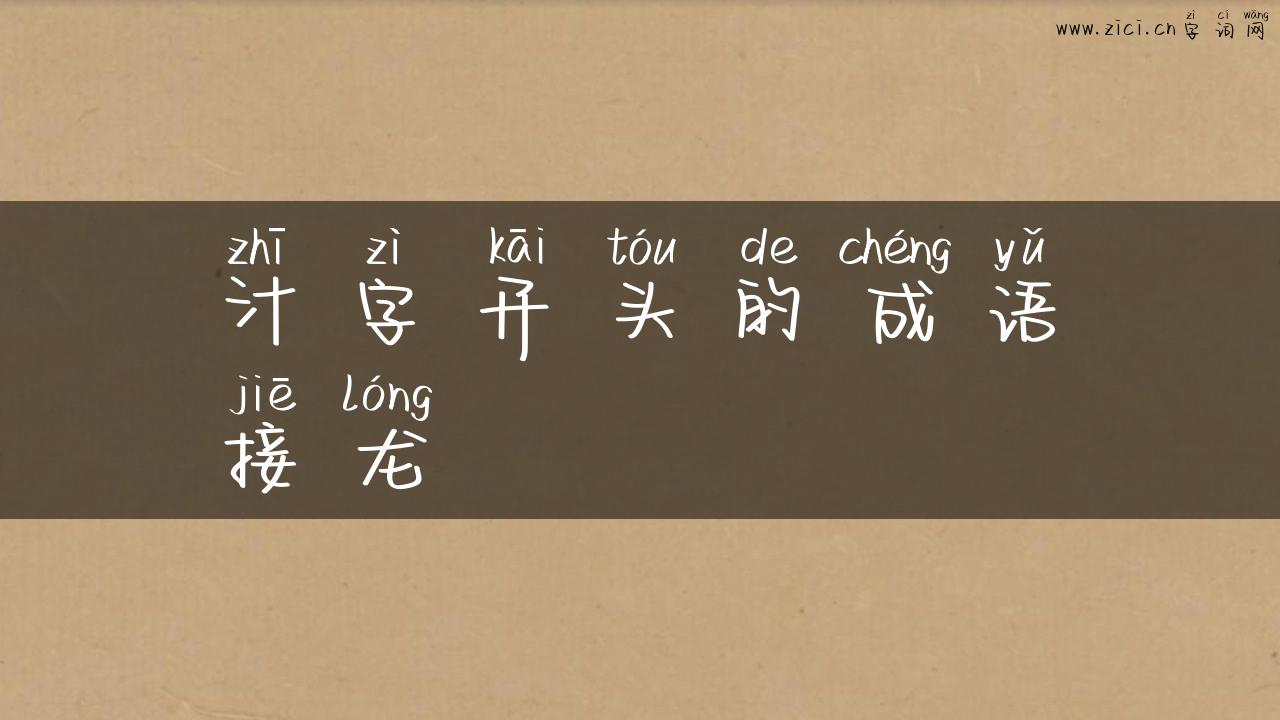 zì cí wǎng
www.zici.cn 字词网
zhī zì kāi tóu de chéng yǔ
汁字开头的成语
jiē lóng
接龙